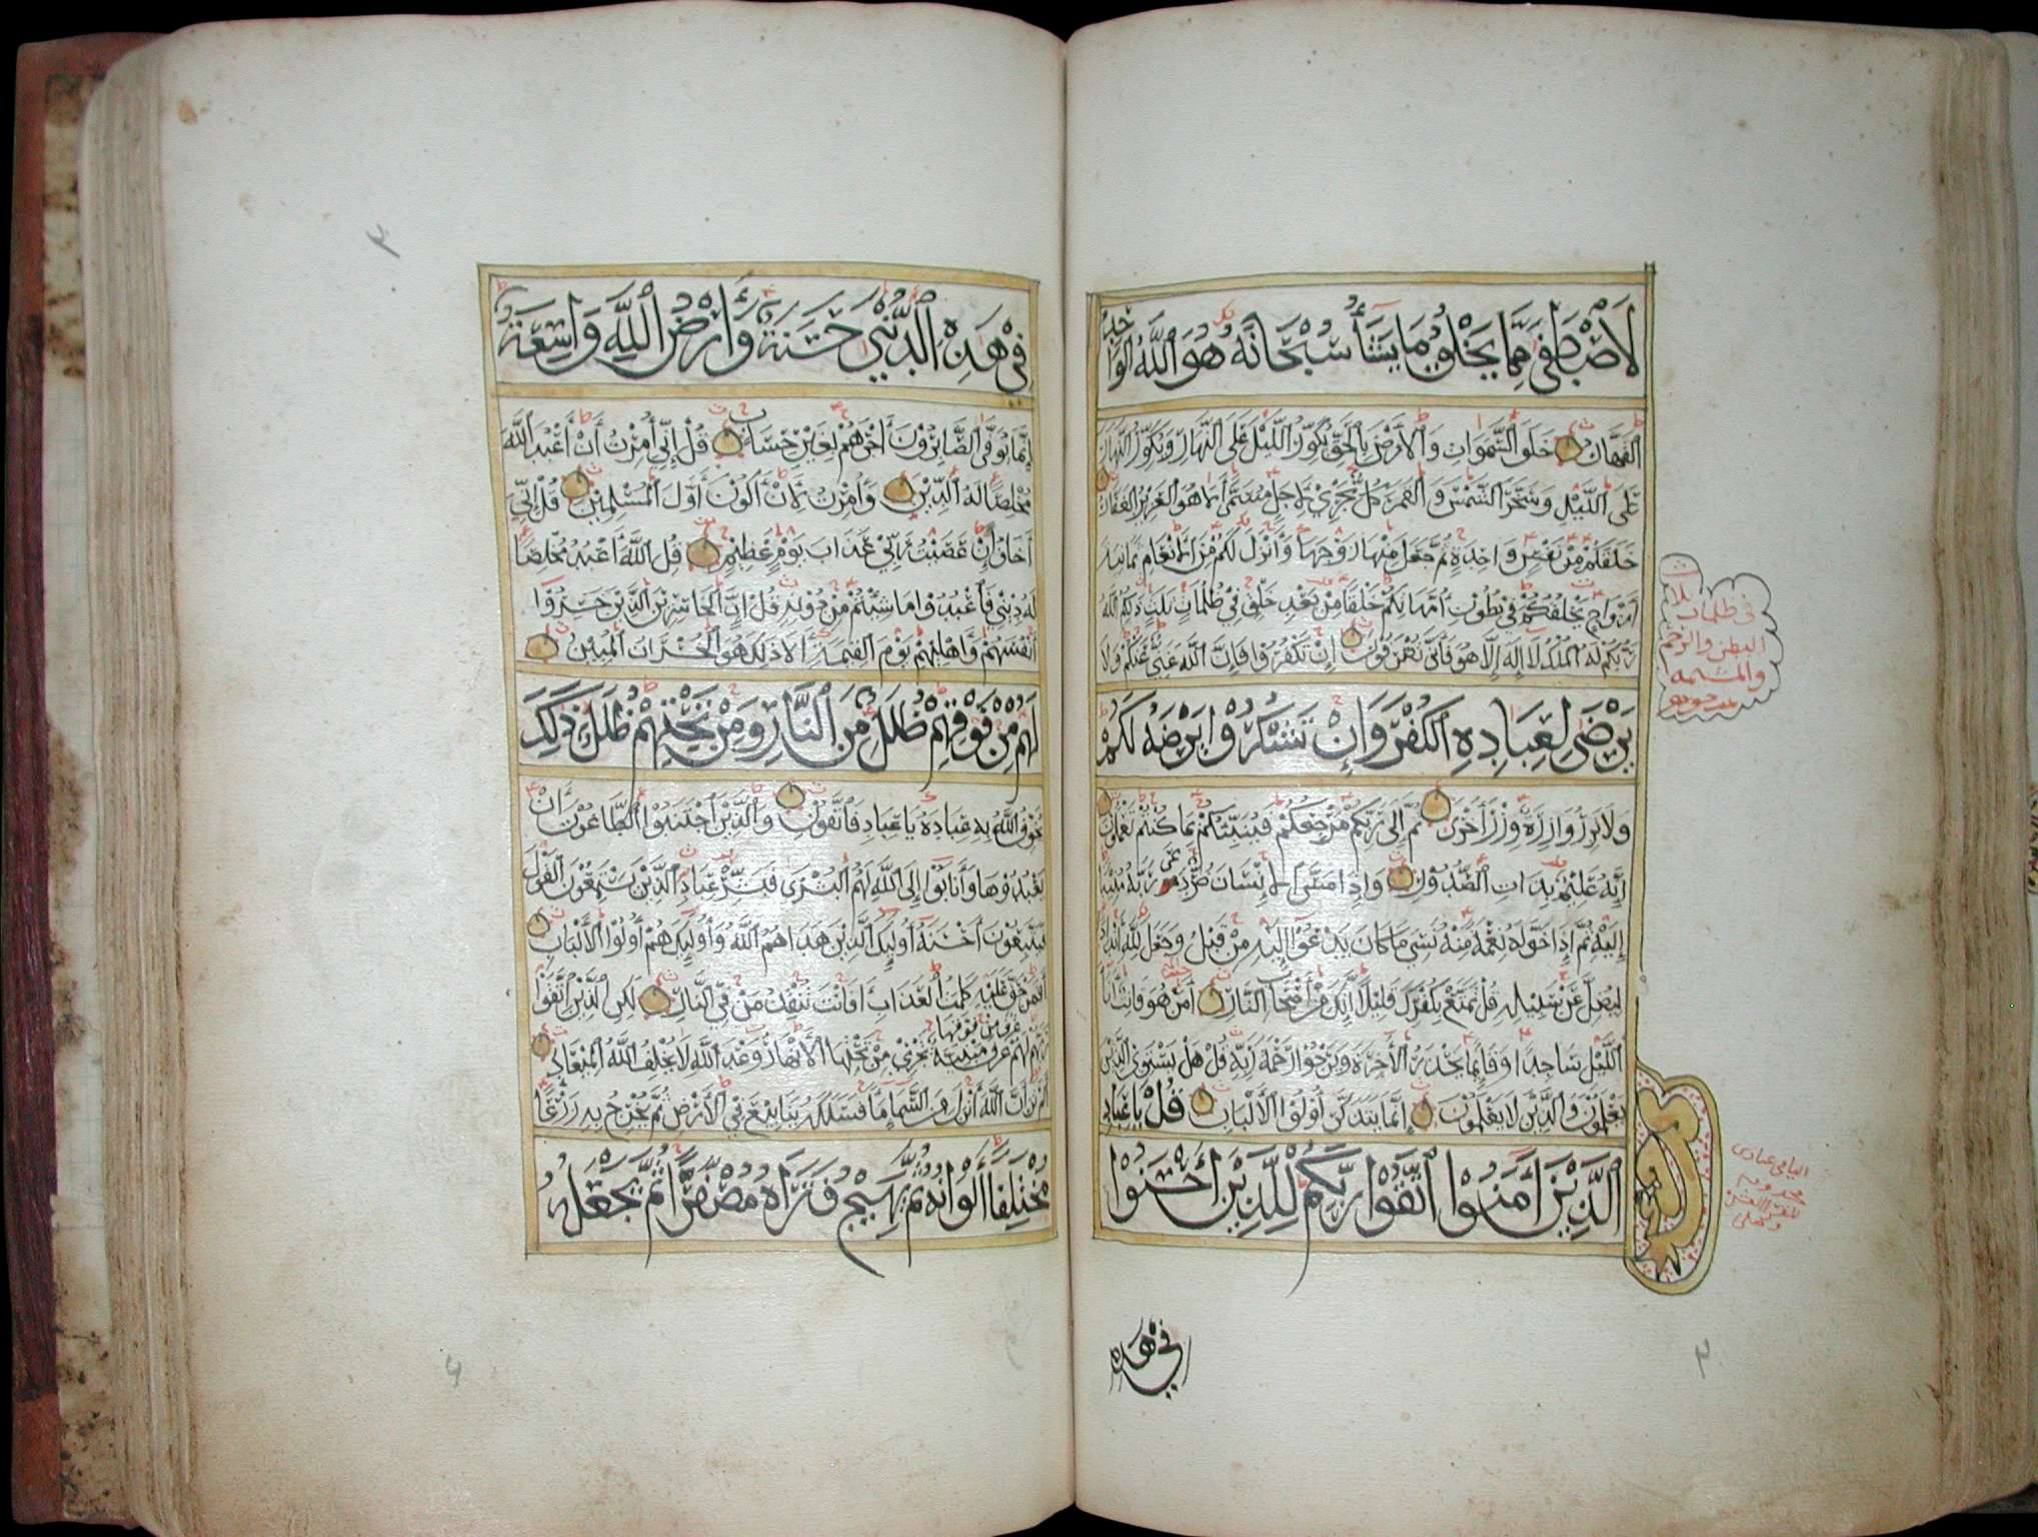 لَاصْطَفَى مِمَّا يَخْلُقُ مَا يَشَاءُ سُبْحَانَهُ هُوَ اللَّهُ الْوَاحِدُ
الْقَهَّارُ خَلَقَ السَّمَوَاتِ وَالْأَرْضَ بِالْحَقِّ يُكَوِّرُ اللَّيْلَ عَلَى النَّهَارِ وَيُكَوِّرُ النَّهَارَ
عَلَى اللَّيْلِ وَسَخَّرَ الشَّمْسَ وَالْقَمَرَ كُلٌّ يَجْرِي لِأَجَلٍ مُسَمًّى أَلَا هُوَ الْعَزِيزُ الْغَفَّارُ
خَلَقَكُمْ مِنْ نَفْسٍ وَاحِدَةٍ ثُمَّ جَعَلَ مِنْهَا زَوْجَهَا وَأَنْزَلَ لَكُمْ مِنَ الْأَنْعَامِ ثَمَانِيَةَ
أَزْوَاجٍ يَخْلُقُكُمْ فِي بُطُونِ أُمَّهَاتِكُمْ خَلْقًا مِنْ بَعْدِ خَلْقٍ فِي ظُلُمَاتٍ ثَلَاثٍ ذَلِكُمُ اللَّهُ
رَبُّكُمْ لَهُ الْمُلْكُ لَا إِلَهَ إِلَّا هُوَ فَأَنَّى تُصْرَفُونَ إِنْ تَكْفُرُوا فَإِنَّ اللَّهَ غَنِيٌّ عَنْكُمْ وَلَا
يَرْضَى لِعِبَادِهِ الْكُفْرَ وَإِنْ تَشْكُرُوا يَرْضَهُ لَكُمْ
وَلَا تَزِرُ وَازِرَةٌ وِزْرَ أُخْرَى ثُمَّ إِلَى رَبِّكُمْ مَرْجِعُكُمْ فَيُنَبِّئُكُمْ بِمَا كُنْتُمْ تَعْمَلُونَ
إِنَّهُ عَلِيمٌ بِذَاتِ الصُّدُورِ وَإِذَا مَسَّ الْإِنْسَانَ ضُرٌّ دَعَى رَبَّهُ مُنِيبًا
إِلَيْهِ ثُمَّ إِذَا خَوَّلَهُ نِعْمَةً مِنْهُ نَسِيَ مَا كَانَ يَدْعُوا إِلَيْهِ مِنْ قَبْلُ وَجَعَلَ لِلَّهِ أَنْدَادًا
لِيُضِلَّ عَنْ سَبِيلِهِ قُلْ تَمَتَّعْ بِكُفْرِكَ قَلِيلًا إِنَّكَ مِنْ أَصْحَابِ النَّارِ أَمَّنْ هُوَ قَانِتٌ آنَاءَ
اللَّيْلِ سَاجِدًا وَقَائِمًا يَحْذَرُ الْآخِرَةَ وَيَرْجُوا رَحْمَةَ رَبِّهِ قُلْ هَلْ يَسْتَوِي الَّذِينَ
يَعْلَمُونَ وَالَّذِينَ لَا يَعْلَمُونَ إِنَّمَا يَتَذَكَّرُ أُولُوا الْأَلْبَابِ قُلْ يَا عِبَادِ
الَّذِينَ آمَنُوا اتَّقُوا رَبَّكُمْ لِلَّذِينَ أَحْسَنُوا
فِي هَذِهِ
في ظلمات ثلاث
البطن والرحم
والمشيمة
فِي هَذِهِ الدُّنْيَا حَسَنَةٌ وَأَرْضُ اللَّهِ وَاسِعَةٌ
إِنَّمَا يُوَفَّى الصَّابِرُونَ أَجْرَهُمْ بِغَيْرِ حِسَابٍ قُلْ إِنِّي أُمِرْتُ أَنْ أَعْبُدَ اللَّهَ
مُخْلِصًا لَهُ الدِّينَ وَأُمِرْتُ لِأَنْ أَكُونَ أَوَّلَ الْمُسْلِمِينَ قُلْ إِنِّي
أَخَافُ إِنْ عَصَيْتُ رَبِّي عَذَابَ يَوْمٍ عَظِيمٍ قُلِ اللَّهَ أَعْبُدُ مُخْلِصًا
لَهُ دِينِي فَاعْبُدُوا مَا شِئْتُمْ مِنْ دُونِهِ قُلْ إِنَّ الْخَاسِرِينَ الَّذِينَ خَسِرُوا
أَنْفُسَهُمْ وَأَهْلِيهِمْ يَوْمَ الْقِيمَةِ أَلَا ذَلِكَ هُوَ الْخُسْرَانُ الْمُبِينُ
لَهُمْ مِنْ فَوْقِهِمْ ظُلَلٌ مِنَ النَّارِ وَمِنْ تَحْتِهِمْ ظُلَلٌ ذَلِكَ
يُخَوِّفُ اللَّهُ بِهِ عِبَادَهُ يَا عِبَادِ فَاتَّقُونِ وَالَّذِينَ اجْتَنَبُوا الطَّاغُوتَ أَنْ
يَعْبُدُوهَا وَأَنَابُوا إِلَى اللَّهِ لَهُمُ الْبُشْرَى فَبَشِّرْ عِبَادِ الَّذِينَ يَسْتَمِعُونَ الْقَوْلَ
فَيَتَّبِعُونَ أَحْسَنَهُ أُولَئِكَ الَّذِينَ هَدَاهُمُ اللَّهُ وَأُولَئِكَ هُمْ أُولُوا الْأَلْبَابِ
أَفَمَنْ حَقَّ عَلَيْهِ كَلِمَةُ الْعَذَابِ أَفَأَنْتَ تُنْقِذُ مَنْ فِي النَّارِ لَكِنِ الَّذِينَ اتَّقَوْا
رَبَّهُمْ لَهُمْ غُرَفٌ مِنْ فَوْقِهَا غُرَفٌ مَبْنِيَّةٌ تَجْرِي مِنْ تَحْتِهَا الْأَنْهَارُ وَعْدَ اللَّهِ لَا يُخْلِفُ اللَّهُ الْمِيعَادَ
أَلَمْ تَرَ أَنَّ اللَّهَ أَنْزَلَ مِنَ السَّمَاءِ مَاءً فَسَلَكَهُ يَنَابِيعَ فِي الْأَرْضِ ثُمَّ يُخْرِجُ بِهِ زَرْعًا
مُخْتَلِفًا أَلْوَانُهُ ثُمَّ يَهِيجُ فَتَرَاهُ مُصْفَرًّا ثُمَّ يَجْعَلُهُ